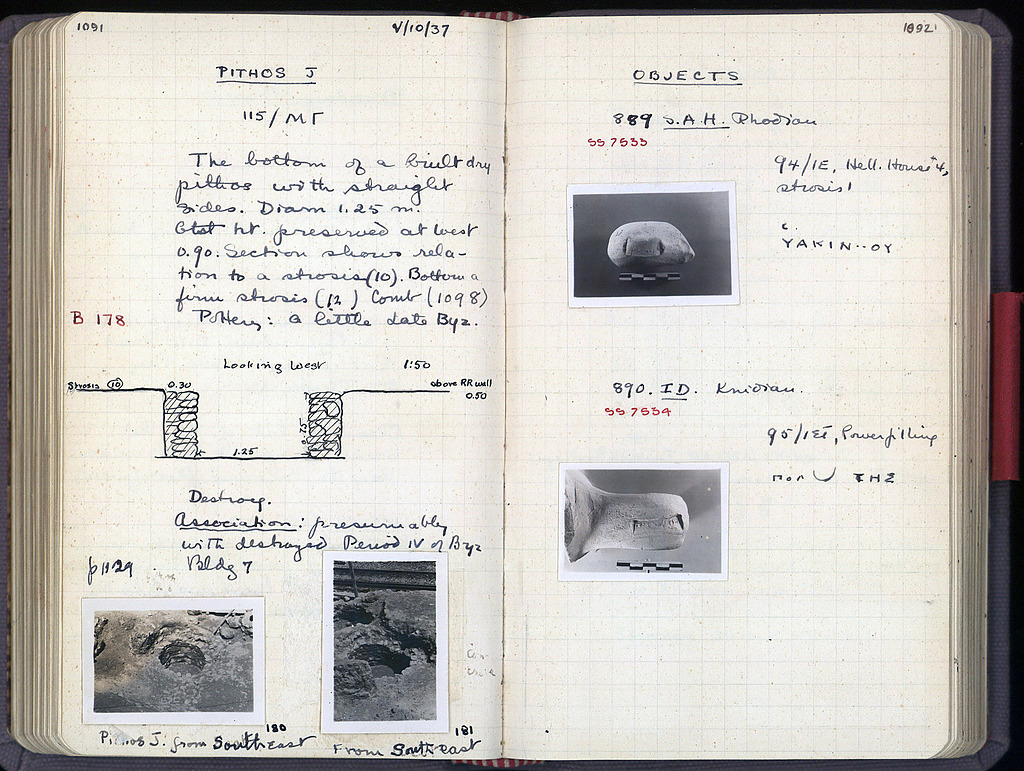 1091
V/10/37
PITHOS J
115/ΜΓ
The bottom of a built dry
pithos with straight
sides. Diam 1.25 m.
Gtst ht. preserved at west
0.90. Section shows rela-
tion to a strosis (10). Bottom a
firm strosis (12) Comb (1098)
B 178
Pottery: a little Late Byz.
Looking West 1:50
Strosis (10)
0.30
above RR wall
0.50
0.75
1.25
Destroy.
Association: presumably
with destroyed Period IV of Byz
Bldg 7
p 1129
180
Pithos J. from Southeast
181
From Southeast
1092
OBJECTS
889 S.A.H. Rhodian
SS 7533
94/ΙΕ, Hell. House 4,
strosis 1
ΥΑΚΙΝ··ΟΥ
890. ID. Knidian.
SS 7534